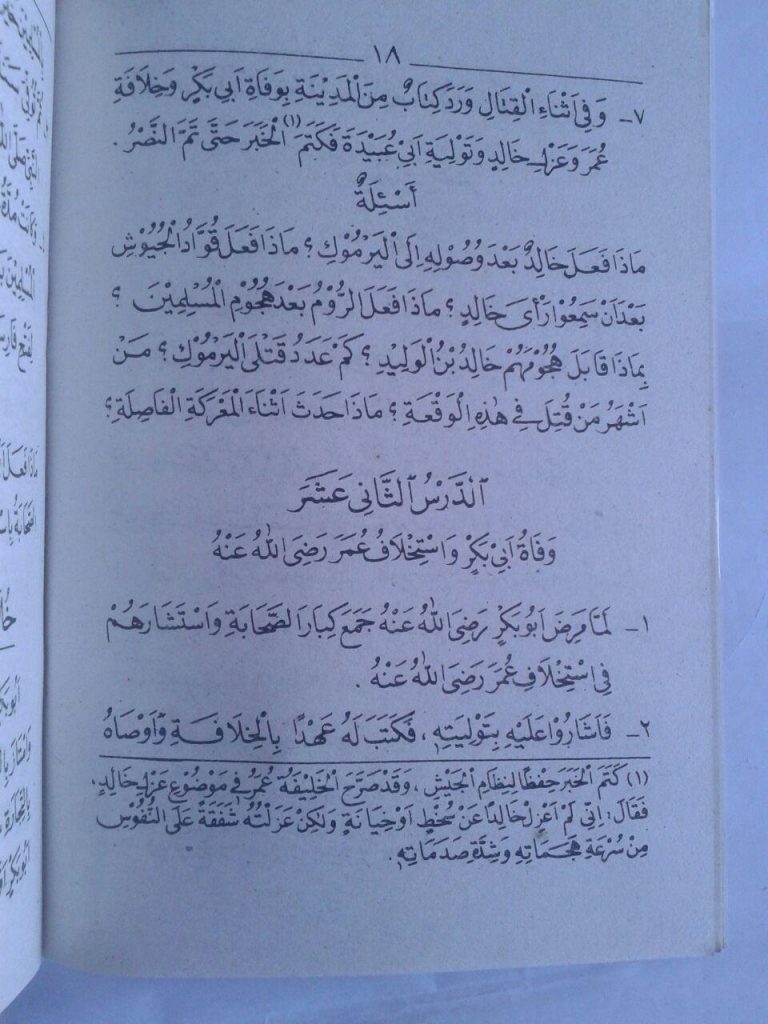 ١٨
٧ـ وَفِى اَثْنَاءِ الْقِتَالِ وَرَدَ كِتَابٌ مِنَ الْمَدِيْنَةِ بِوَفَاةِ اَبِى بَكْرٍ وَخِلَافَةِ
عُمَرَ وَعَزْلِ خَالِدٍ وَتَوْلِيَةِ اَبِىْ عُبَيْدَةَ فَكَتَمَ (١) الْخَبَرَ حَتَّى تَمَّ النَّصْرُ .
أَسْئِلَةٌ
مَاذَا فَعَلَ خَالِدٌ بَعْدَ وُصُوْلِهِ اِلَى الْيَرْمُوْكِ ؟ مَاذَا فَعَلَ قُوَّادُ الْجُيُوْشِ
بَعْدَ اَنْ سَمِعُوْا رَأْىَ خَالِدٍ ؟ مَاذَا فَعَلَ الرُّوْمُ بَعْدَ هُجُوْمِ الْمُسْلِمِيْنَ ؟
بِمَاذَا قَابَلَ هُجُوْمَهُمْ خَالِدُ بْنُ الْوَلِيْدِ ؟ كَمْ عَدَدُ قَتْلَى الْيَرْمُوْكِ ؟ مَنْ
اَشْهَرُ مَنْ قُتِلَ فِى هٰذِهِ الْوَقْعَةِ ؟ مَاذَا حَدَثَ اَثْنَاءَ الْمَعْرَكَةِ الْفَاصِلَةِ ؟
اَلدَّرْسُ الثَّانِى عَشَرَ
وَفَاةُ اَبِىْ بَكْرٍ وَاسْتِخْلَافُ عُمَرَ رَضِىَ اللهُ عَنْهُ
١ـ لَمَّا مَرِضَ اَبُوْ بَكْرٍ رَضِىَ اللهُ عَنْهُ جَمَعَ كِبَارَ الصَّحَابَةِ وَاسْتَشَارَهُمْ
فِى اسْتِخْلَافِ عُمَرَ رَضِىَ اللهُ عَنْهُ .
٢ـ فَاَشَارُوْا عَلَيْهِ بِتَوْلِيَتِهِ ، فَكَتَبَ لَهُ عَهْدًا بِالْخِلَافَةِ وَاَوْصَاهُ
(١) كَتَمَ الْخَبَرَ حِفْظًا لِنِظَامِ الْجَيْشِ ، وَقَدْ صَرَّحَ الْخَلِيْفَةُ عُمَرُ فِى مَوْضُوْعِ عَزْلِ خَالِدٍ ،
فَقَالَ : اِنِّى لَمْ اَعْزِلْ خَالِدًا عَنْ سُخْطٍ اَوْ خِيَانَةٍ وَلٰكِنْ عَزَلْتُهُ شَفَقَةً عَلَى النُّفُوْسِ
مِنْ سُرْعَةِ هَجَمَاتِهِ وَشِدَّةِ صَدَمَاتِهِ .